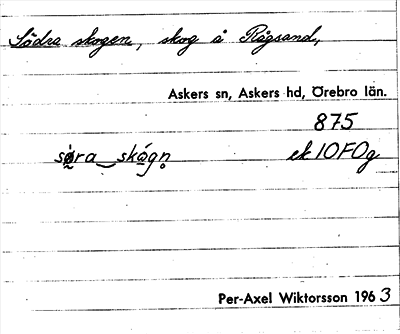 Södra skogen, skog å Rågsand,
Askers sn, Askers hd, Örebro län.
875
søra skǻgn̥ ek 10F0g
Per-Axel Wiktorsson 1963